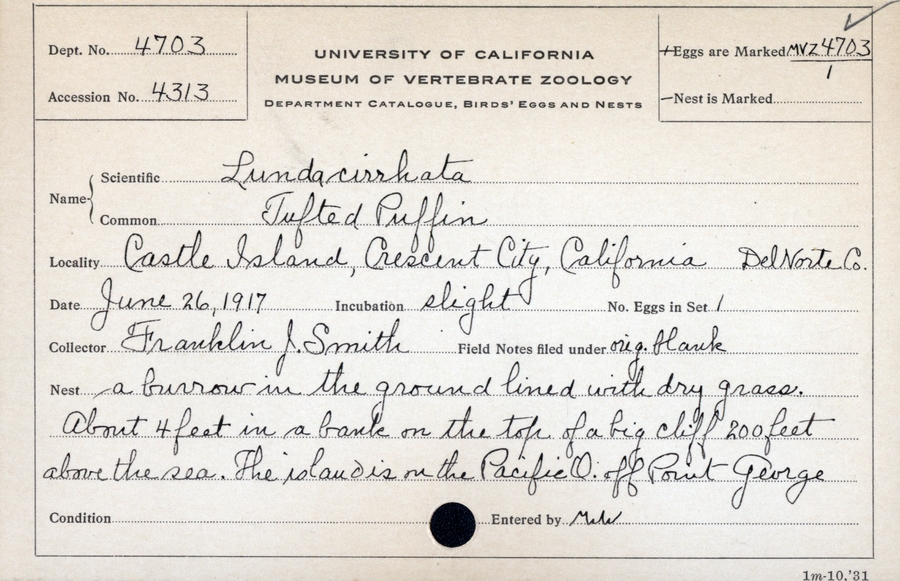 Dept. No. 4703
Accession No. 4313
UNIVERSITY OF CALIFORNIA
MUSEUM OF VERTEBRATE ZOOLOGY
DEPARTMENT CATALOGUE, BIRDS' EGGS AND NESTS
Eggs are Marked MVZ 4703
1
Nest is Marked
Name
Scientific Lunda cirrhata
Common Tufted Puffin
Locality Castle Island, Crescent City, California Del Norte Co.
Date June 26, 1917 Incubation slight No. Eggs in Set 1
Collector Franklin J. Smith Field Notes filed under orig. blank
Nest a burrow in the ground lined with dry grass.
About 4 feet in a bank on the top of a big cliff 200 feet
above the sea. The island is on the Pacific O. off Point George
Condition Entered by
1m-10,'31